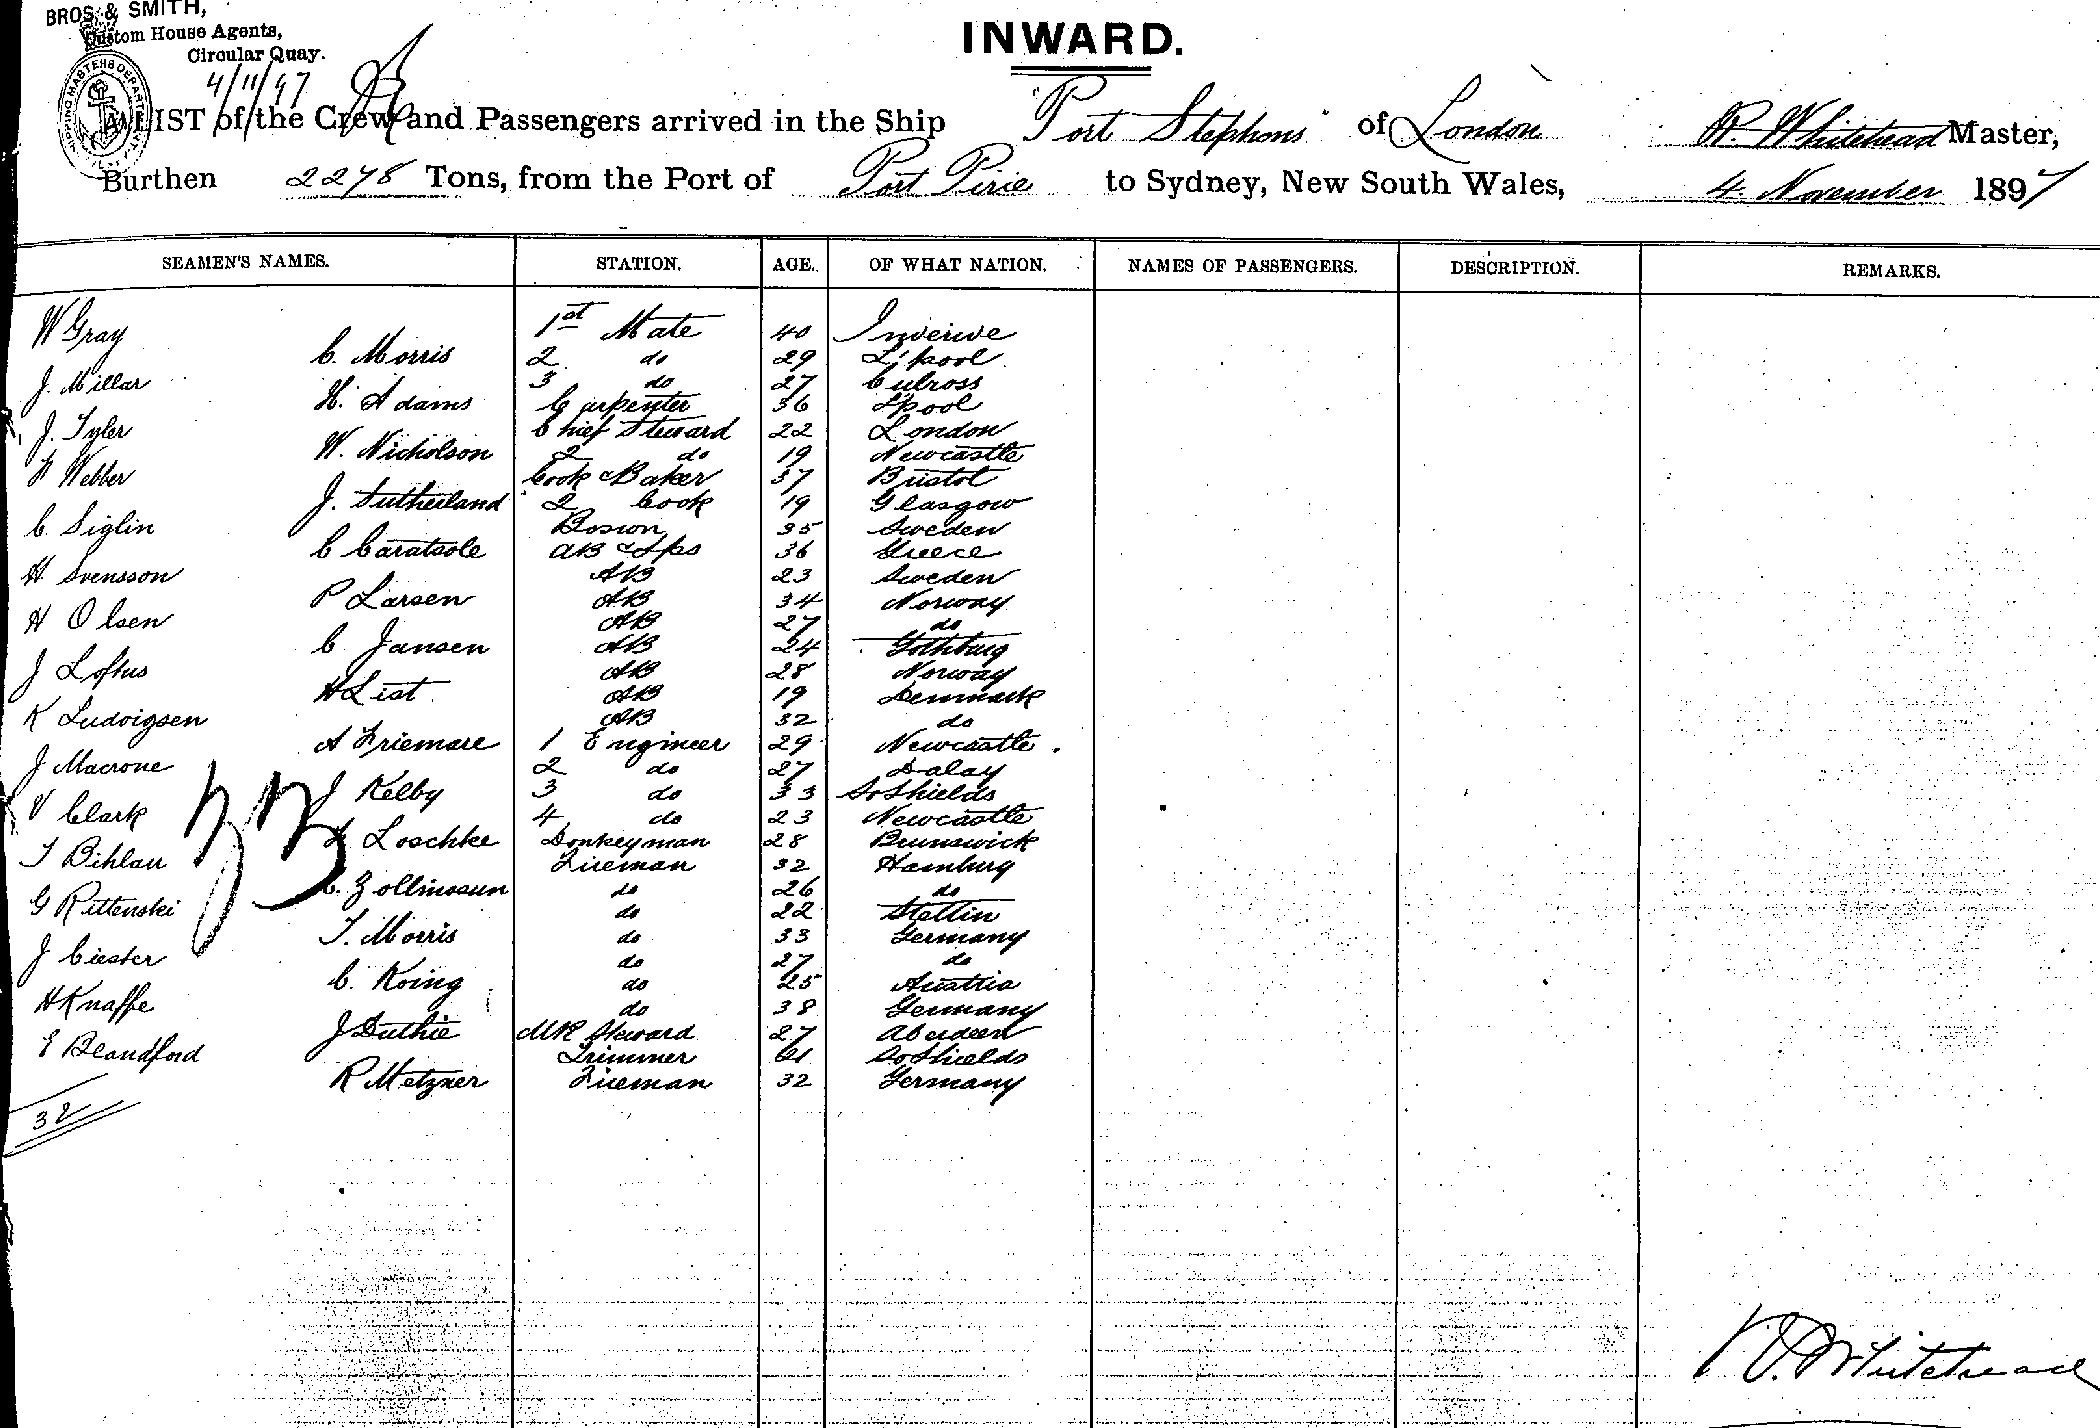 BROS. & SMITH,
Custom House Agents,
Circular Quay.
4/11/97
INWARD.
A LIST of the Crew and Passengers arrived in the Ship "Port Stephens" of London R. Whitehead Master,
Burthen 2278 Tons, from the Port of Port Pirie to Sydney, New South Wales, 4 November 1897
SEAMEN'S NAMES. STATION. AGE. OF WHAT NATION. NAMES OF PASSENGERS. DESCRIPTION. REMARKS.
W Gray 1st Mate 40
C. Morris 2 do 29 L'pool
J. Millar 3 do 27 Culross
H. Adams Carpenter 36 L'pool
J. Tyler Chief Steward 22 London
W. Nicholson 2 do 19 Newcastle
Webber Cook & Baker 37 Bristol
J. Sutherland 2 Cook 19 Glasgow
C. Siglin Boswn 35 Sweden
C Caratsole AB & Lps 36 Greece
H. Svensson AB 23 Sweden
P Larsen AB 34 Norway
H Olsen AB 27 do
C Jansen AB 24 Gothburg
J Loftus AB 28 Norway
H List AB 19 Denmark
K Ludvigsen AB 32 do
A Friemare 1 Engineer 29 Newcastle
J Macrone 2 do 27 Dalay
J Kelby 3 do 33 So Shields
V Clark 4 do 23 Newcastle
Loschke Donkeyman 28 Brunswick
T Bihlau Fireman 32 Hamburg
C. Zollmosun do 26 do
G Rittenski do 22 Stettin
T. Morris do 33 Germany
J Ciester do 27 do
C. Koing do 25 Austria
H Knaffe do 38 Germany
J Duthie MR Steward 27 Aberdeen
E Blandford Trimmer 21 So Shields
R Metzner Fireman 32 Germany
32
R. Whitehead